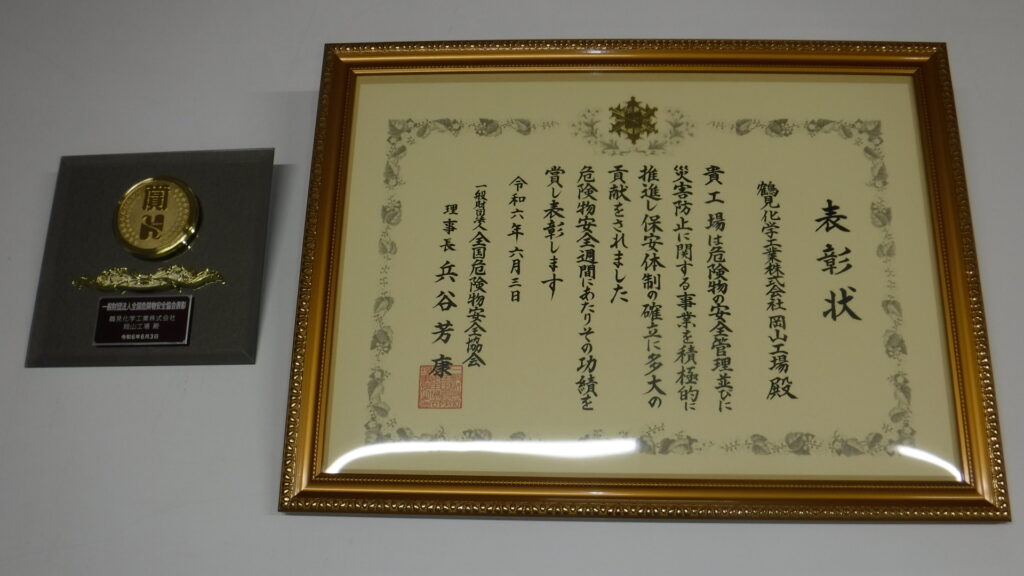 表彰状
鶴見化学工業株式会社 岡山工場 殿
貴工場は危険物の安全管理並びに
災害防止に関する事業を積極的に
推進し保安体制の確立に多大の
貢献をされました
危険物安全週間にあたりその功績を
賞し表彰します
令和六年六月三日
一般財団法人全国危険物安全協会
理事長 兵谷芳康
賞
一般財団法人全国危険物安全協会表彰
鶴見化学工業株式会社
岡山工場 殿
令和6年6月3日